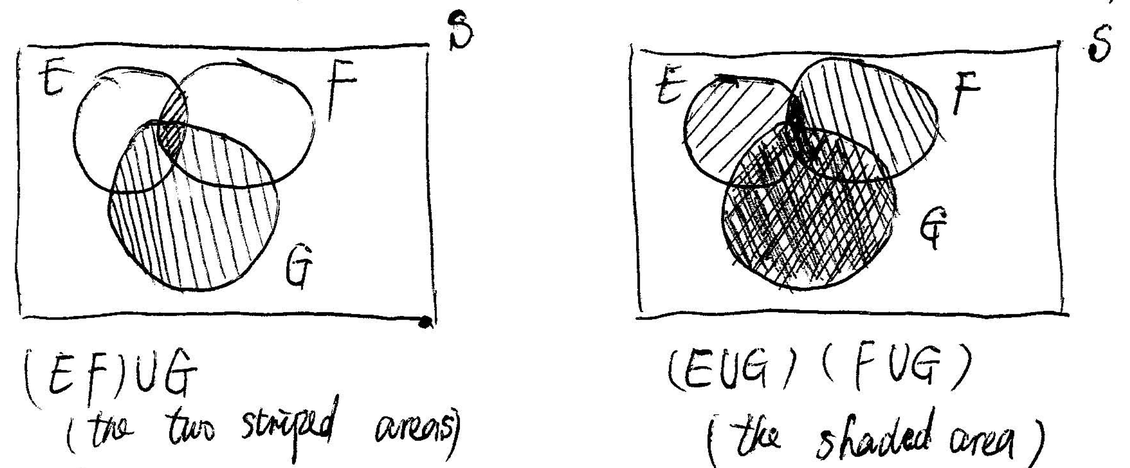 S
E
F
G
(EF)UG
(the two striped areas)
S
E
F
G
(EUG)(FUG)
(the shaded area)